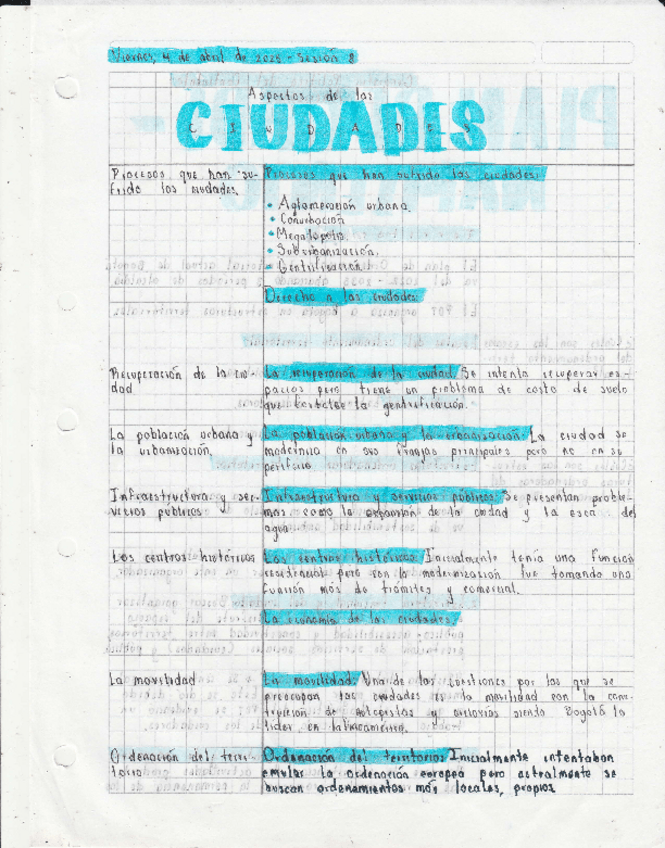 Viernes, 4 de abril de 2025 - Sesión 8
Aspectos de las
CIUDADES
Procesos que han su-
frido las ciudades.
Procesos que han sufrido las ciudades:
• Aglomeración urbana.
• Conurbación
• Megalópolis.
• Suburbanización.
• Gentrificación.
Derecho a las ciudades:
Recuperación de la ciu-
dad
La recuperación de la ciudad: Se intenta recuperar es-
pacios pero tiene un problema de costo de suelo
que fortalece la gentrificación.
La población urbana y
la urbanización.
La población urbana y la urbanización: La ciudad se
moderniza en sus franjas principales pero no en su
periferia
Infraestructura y ser-
vicios públicos
Infraestructura y servicios públicos: Se presentan proble-
mas como la expansión de la ciudad y la esca del
agua
Los centros históricos
Los centros históricos: Inicialmente tenía una función
residencial pero con la modernización fue tomando una
función más de trámites y comercial.
La economía de las ciudades:
La movilidad
La movilidad: Una de las cuestiones por las que se
preocupan las ciudades es la movilidad con la cons-
trucción de autopistas y ciclovías siendo Bogotá la
líder en latinoamérica.
Ordenación del terri-
torio
Ordenación del territorio: Inicialmente intentaban
emular la ordenación europea pero actualmente se
buscan ordenamientos más locales, propios